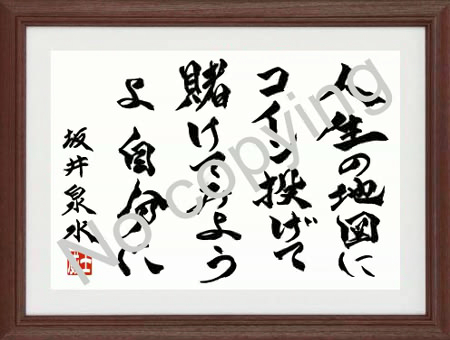 人生の地図に
コイン投げて
賭けてみよう
よ自分に
坂井泉水
No copying